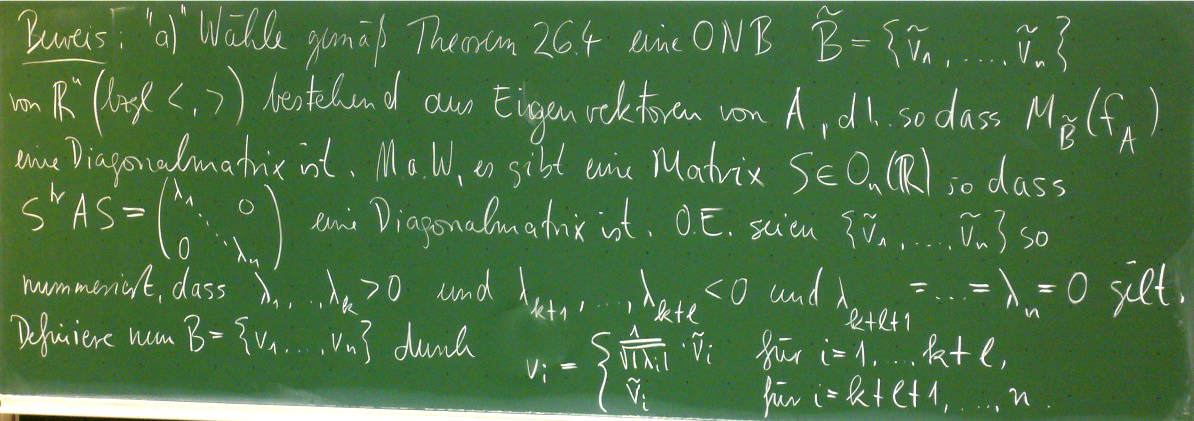 Beweis: "a)" Wähle gemäß Theorem 26.4 eine ONB B̃ = {ṽ₁, ...., ṽₙ}
von ℝⁿ (bzgl <,>) bestehend aus Eigenvektoren von A, d.h. so dass M_B̃(f_A)
eine Diagonalmatrix ist. M.a.W, es gibt eine Matrix S ∈ Oₙ(ℝ) so dass
S^tr A S = (λ₁ ⋱ λₙ, 0, 0) eine Diagonalmatrix ist. O.E. seien {ṽ₁, ...., ṽₙ} so
nummeriert, dass λ₁, .., λ_k > 0 und λ_{k+1}, ..., λ_{k+ℓ} < 0 und λ_{k+ℓ+1} = ... = λₙ = 0 gilt.
Definiere nun B = {v₁, ..., vₙ} durch vᵢ = { 1/√|λᵢ| · ṽᵢ für i = 1, ... k+ℓ,
ṽᵢ für i = k+ℓ+1, ..., n.